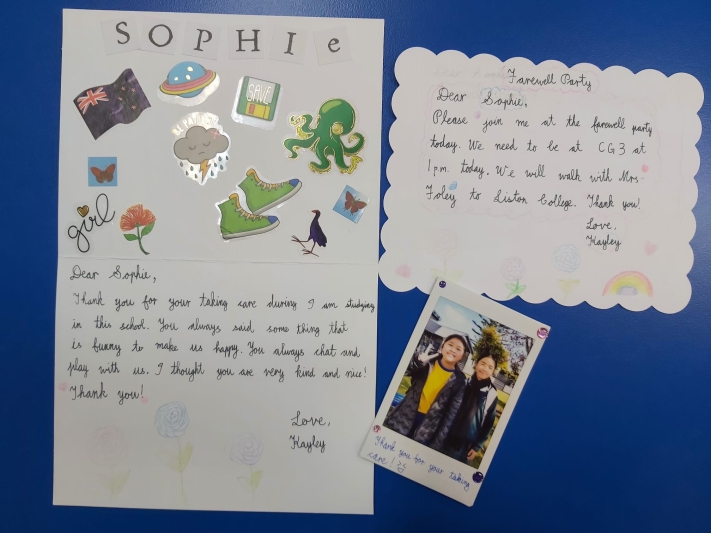 SOPHIe
SAVE
girl
Dear Sophie,
Thank you for your taking care during I am studying
in this school. You always said some thing that
is funny to make us happy. You always chat and
play with us. I thought you are very kind and nice!
Thank you!
Love,
Kayley
Farewell Party
Dear Sophie,
Please join me at the farewell party
today. We need to be at CG3 at
1pm today. We will walk with Mrs
Foley to Liston College. Thank you!
Love,
Kayley
Thank you for your taking
care!